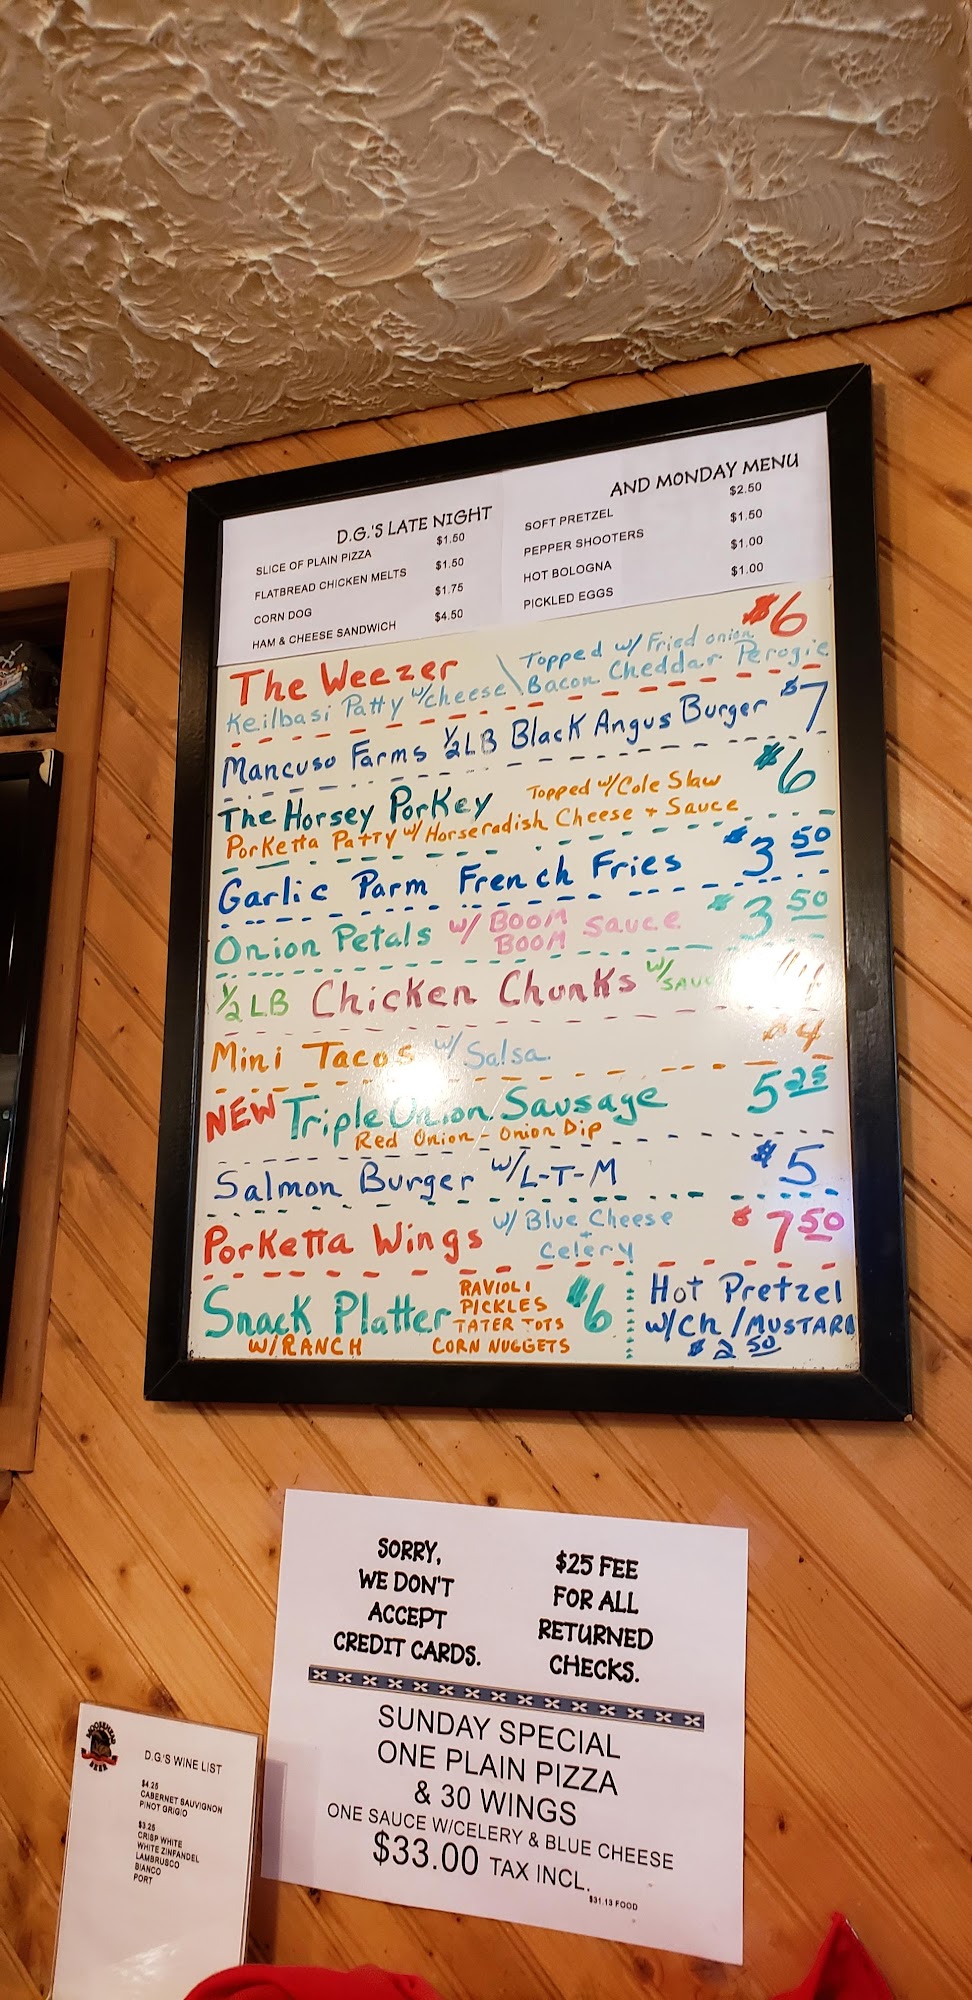 D.G.'S LATE NIGHT AND MONDAY MENU
SLICE OF PLAIN PIZZA $1.50
FLATBREAD CHICKEN MELTS $1.50
CORN DOG $1.75
HAM & CHEESE SANDWICH $4.50
SOFT PRETZEL $2.50
PEPPER SHOOTERS $1.50
HOT BOLOGNA $1.00
PICKLED EGGS $1.00
The Weezer Topped w/ Fried onion $6
Keilbasi Patty w/cheese \ Bacon Cheddar Perogie
Mancuso Farms 1/2 LB Black Angus Burger $7
The Horsey Porkey Topped w/Cole Slaw $6
Porketta Patty w/Horseradish Cheese + Sauce
Garlic Parm French Fries $3 50
Onion Petals w/ BOOM BOOM Sauce $3 50
1/2 LB Chicken Chunks w/
Mini Tacos w/ Salsa $4
NEW Triple Onion Sausage 5 25
Red Onion - Onion Dip
Salmon Burger w/L-T-M $5
Porketta Wings w/ Blue Cheese + Celery $7 50
Snack Platter $6
W/RANCH
RAVIOLI
PICKLES
TATER TOTS
CORN NUGGETS
Hot Pretzel
w/Ch/MUSTARD
$2 50
SORRY,
WE DON'T
ACCEPT
CREDIT CARDS.
$25 FEE
FOR ALL
RETURNED
CHECKS.
SUNDAY SPECIAL
ONE PLAIN PIZZA
& 30 WINGS
ONE SAUCE W/CELERY & BLUE CHEESE
$33.00 TAX INCL.
$31.13 FOOD
MOOSEHEAD
BEER
D.G.'S WINE LIST
$4.25
CABERNET SAUVIGNON
PINOT GRIGIO
$3.25
CRISP WHITE
WHITE ZINFANDEL
LAMBRUSCO
BIANCO
PORT